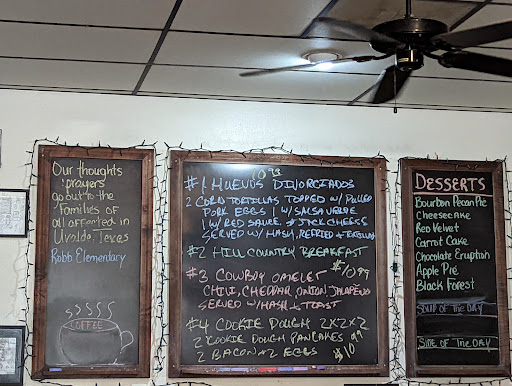 Our thoughts
& prayers
go out to the
families of
all affected in
Uvalde, Texas
Robb Elementary
COFFEE
10.93
#1 HUEVOS DIVORCIADOS
2 CORN TORTILLAS TOPPED W/ PULLED
PORK EGGS 1 W/ SALSA VERDE
1 W/ RED SAUCE & JACK CHEESE
SERVED W/ HASH, REFRIED & TORTILLAS
#2 HILL COUNTRY BREAKFAST
$10.99
#3 COWBOY OMELET
CHILI, CHEDDAR, ONION, JALAPENO
SERVED W/ HASH & TOAST
#4 COOKIE DOUGH 2X2X2
2 COOKIE DOUGH PANCAKES
2 BACON & 2 EGGS $10.99
DESSERTS
Bourbon Pecan Pie
Cheesecake
Red Velvet
Carrot Cake
Chocolate Eruption
Apple Pie
Black Forest
SOUP OF THE DAY
SIDE OF THE DAY